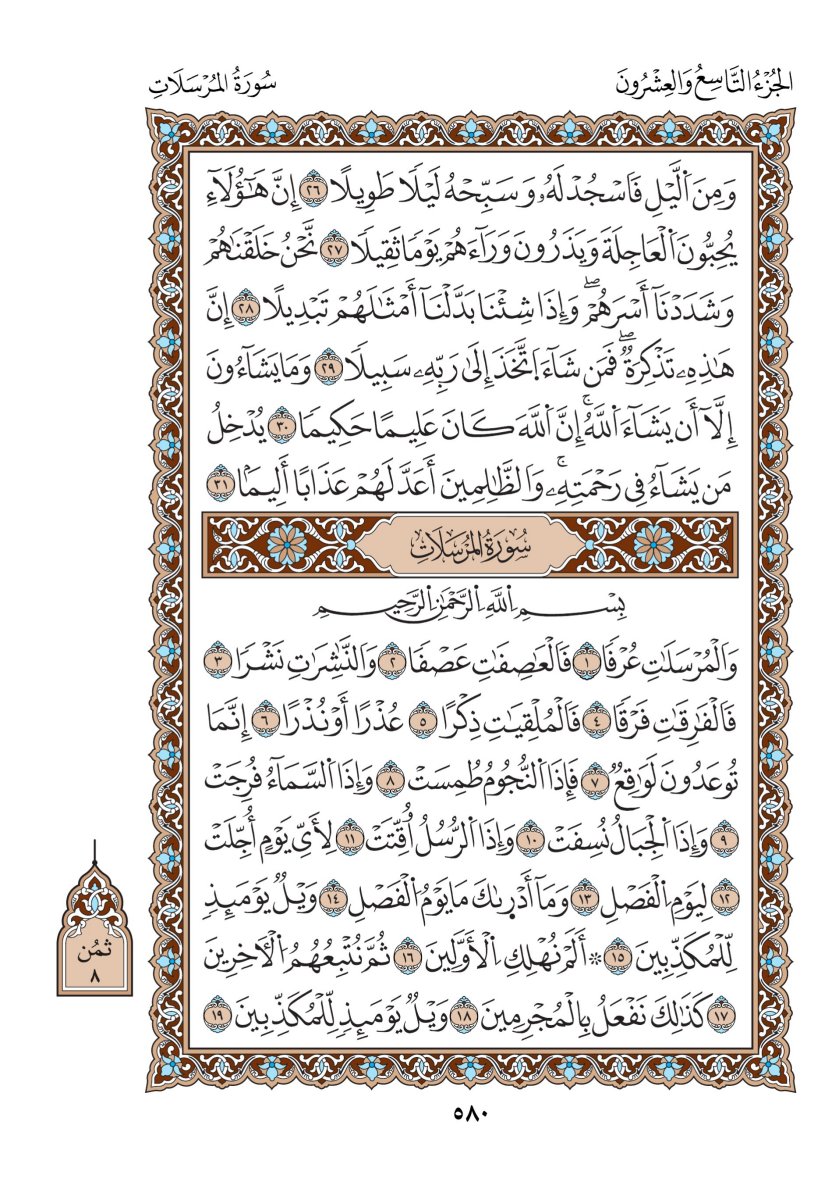 الجُزْءُ التَّاسِعُ وَالعِشْرُونَ
سُورَةُ المُرْسَلَاتِ
وَمِنَ ٱلَّيْلِ فَٱسْجُدْ لَهُۥ وَسَبِّحْهُ لَيْلًا طَوِيلًا ٢٦ إِنَّ هَٰٓؤُلَآءِ
يُحِبُّونَ ٱلْعَاجِلَةَ وَيَذَرُونَ وَرَآءَهُمْ يَوْمًا ثَقِيلًا ٢٧ نَّحْنُ خَلَقْنَٰهُمْ
وَشَدَدْنَآ أَسْرَهُمْۖ وَإِذَا شِئْنَا بَدَّلْنَآ أَمْثَٰلَهُمْ تَبْدِيلًا ٢٨ إِنَّ
هَٰذِهِۦ تَذْكِرَةٌۖ فَمَن شَآءَ ٱتَّخَذَ إِلَىٰ رَبِّهِۦ سَبِيلًا ٢٩ وَمَا يَشَآءُونَ
إِلَّآ أَن يَشَآءَ ٱللَّهُۚ إِنَّ ٱللَّهَ كَانَ عَلِيمًا حَكِيمًا ٣٠ يُدْخِلُ
مَن يَشَآءُ فِى رَحْمَتِهِۦۚ وَٱلظَّٰلِمِينَ أَعَدَّ لَهُمْ عَذَابًا أَلِيمًۢا ٣١
سُورَةُ المُرْسَلَاتِ
بِسْمِ ٱللَّهِ ٱلرَّحْمَٰنِ ٱلرَّحِيمِ
وَٱلْمُرْسَلَٰتِ عُرْفًا ١ فَٱلْعَٰصِفَٰتِ عَصْفًا ٢ وَٱلنَّٰشِرَٰتِ نَشْرًا ٣
فَٱلْفَٰرِقَٰتِ فَرْقًا ٤ فَٱلْمُلْقِيَٰتِ ذِكْرًا ٥ عُذْرًا أَوْ نُذْرًا ٦ إِنَّمَا
تُوعَدُونَ لَوَٰقِعٌ ٧ فَإِذَا ٱلنُّجُومُ طُمِسَتْ ٨ وَإِذَا ٱلسَّمَآءُ فُرِجَتْ
٩ وَإِذَا ٱلْجِبَالُ نُسِفَتْ ١٠ وَإِذَا ٱلرُّسُلُ أُقِّتَتْ ١١ لِأَىِّ يَوْمٍ أُجِّلَتْ
١٢ لِيَوْمِ ٱلْفَصْلِ ١٣ وَمَآ أَدْرَىٰكَ مَا يَوْمُ ٱلْفَصْلِ ١٤ وَيْلٌ يَوْمَئِذٍ
لِّلْمُكَذِّبِينَ ١٥ ۞ أَلَمْ نُهْلِكِ ٱلْأَوَّلِينَ ١٦ ثُمَّ نُتْبِعُهُمُ ٱلْءَاخِرِينَ
١٧ كَذَٰلِكَ نَفْعَلُ بِٱلْمُجْرِمِينَ ١٨ وَيْلٌ يَوْمَئِذٍ لِّلْمُكَذِّبِينَ ١٩
ثُمُن
٨
٥٨٠